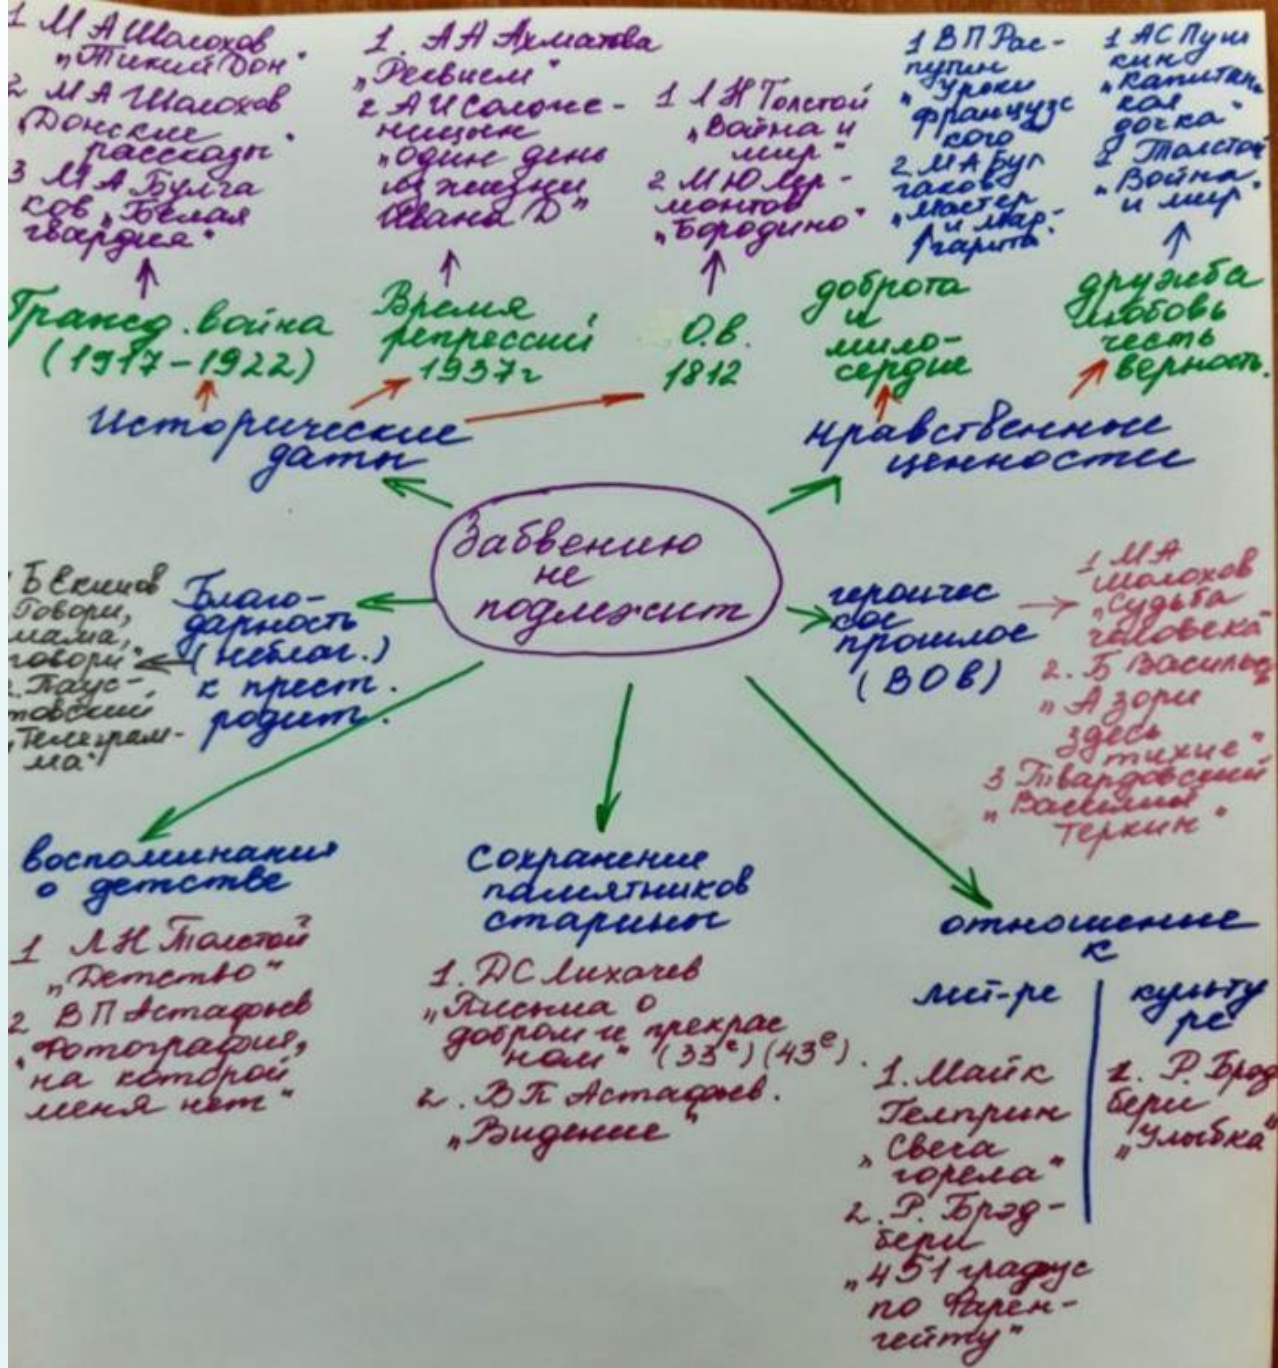 1 М А Шолохов
„Тихий Дон"
2 М А Шолохов
„Донские
рассказы"
3 М А Булга
ков „Белая
гвардия"
Гражд. война
(1917-1922)
1. А А Ахматова
„Реквием"
2 А И Солже-
ницын
„Один день
из жизни
Ивана Д"
Время
репрессий
1937г
1 Л Н Толстой
„Война и
мир"
2 М Ю Лер-
монтов
„Бородино"
О.В.
1812
1 В П Рас-
путин
„Уроки
французс
кого"
2 М А Бул
гаков
„Мастер
и Мар-
гарита"
доброта
и
мило-
сердие
1 А С Пуш
кин
„Капитан
кая
дочка"
2 Толстой
„Война
и мир"
дружба
любовь
честь
верность.
Исторические
даты
Нравственные
ценности
Забвению
не
подлежит
Б Екимов
Говори,
мама,
говори"
Паус-
товский
„Телеграм-
ма"
Благо-
дарность
(неблаг.)
к прест.
родит.
героичес
кое
прошлое
(ВОВ)
1 М А
Шолохов
„Судьба
человека"
2. Б Васильев
„А зори
здесь
тихие"
3 Твардовский
„Василий
Теркин"
воспоминания
о детстве
1 Л Н Толстой
„Детство"
2 В П Астафьев
„Фотография,
на которой
меня нет"
Сохранение
памятников
старины
1. Д С Лихачев
„Письма о
добром и прекрас
ном" (33е) (43е).
2. В П Астафьев.
„Видение"
отношение
к
лит-ре
культу
ре
1. Майк
Гелприн
„Свеча
горела"
2. Р. Брэд-
бери
„451 градус
по Фарен-
гейту"
1. Р. Брэд
бери
„Улыбка"